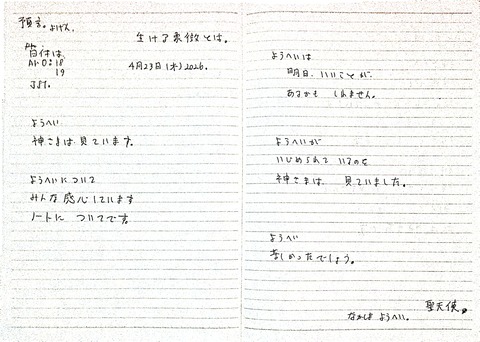 予言。よげん。
生ける象徴とは。
日付は
AM 0:18
19
JST.
4月23日(木)2026.
ようへい
神さまは見ています。
ようへいについて
みんな感心しています
ノートに ついてです。
ようへいは
明日、いいことが、
あるかも しれません。
ようへいが
いじめられて いてるのを
神さまは、見ていました。
ようへい
苦しかったでしょう。
聖天使。
なかしま ようへい。